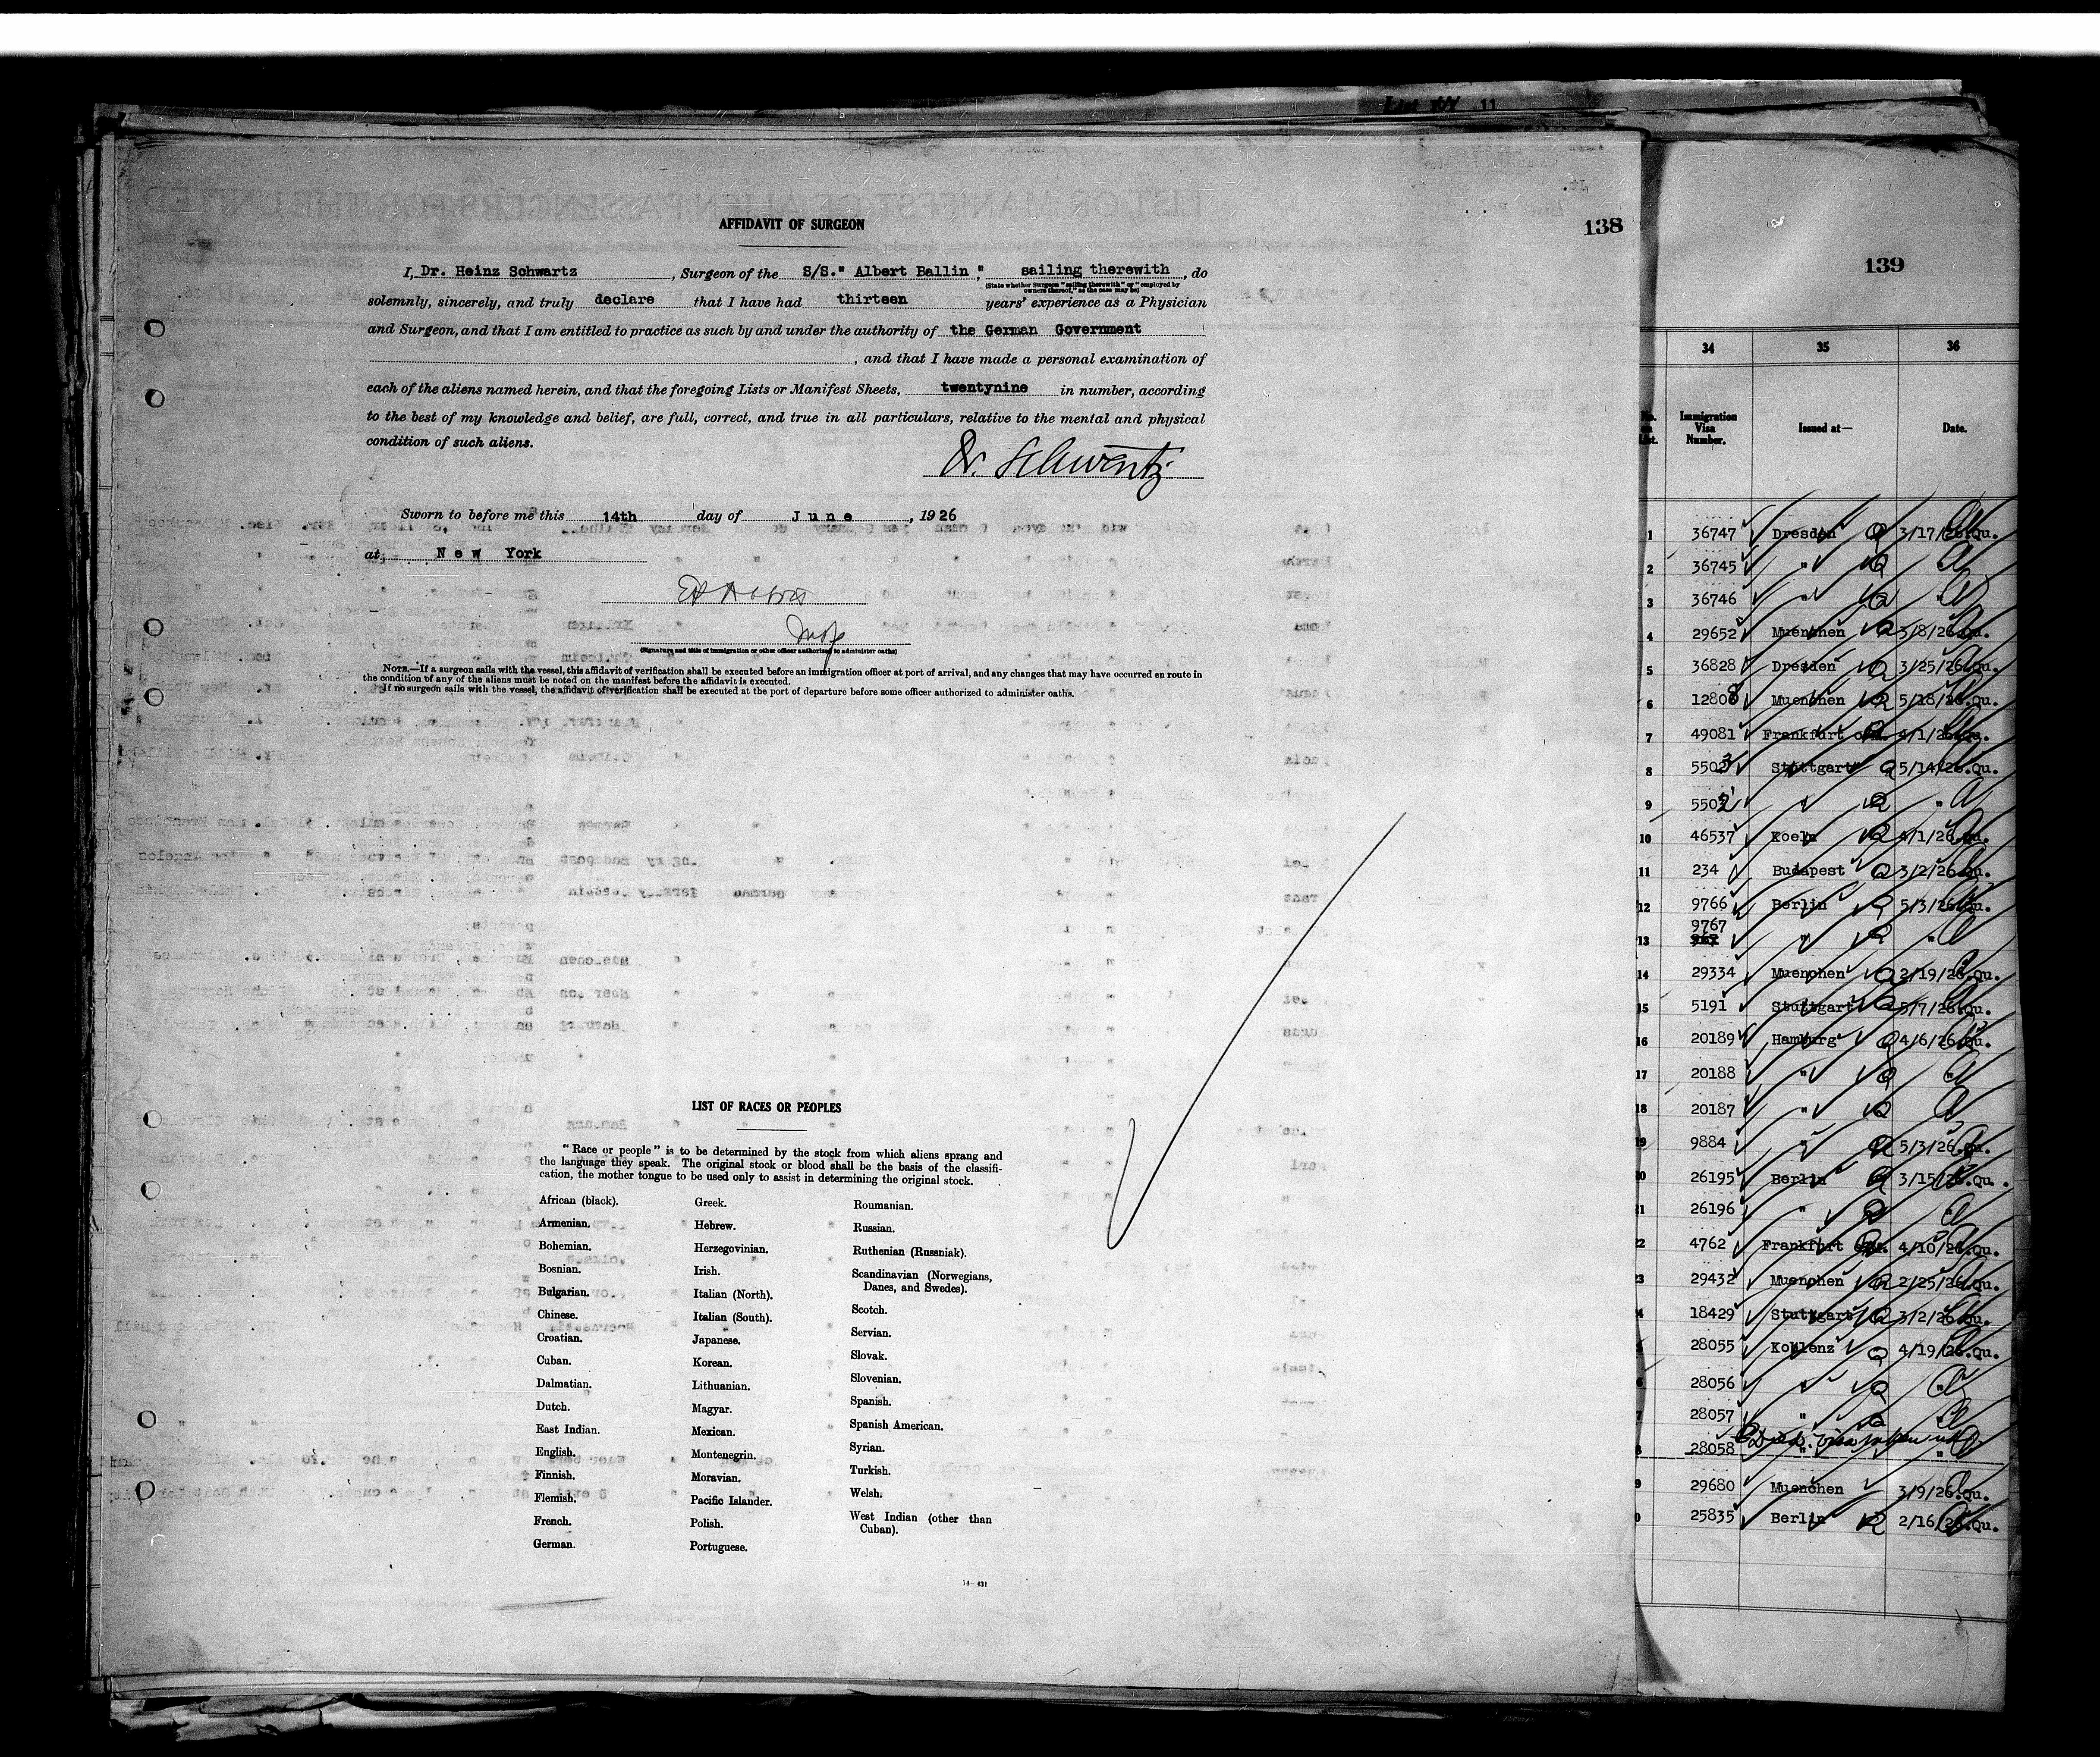 AFFIDAVIT OF SURGEON
138
I, Dr. Heinz Schwartz, Surgeon of the S/S." Albert Ballin," sailing therewith, do
(State whether Surgeon "sailing therewith" or "employed by
owners thereof," as the case may be)
solemnly, sincerely, and truly declare that I have had thirteen years' experience as a Physician
and Surgeon, and that I am entitled to practice as such by and under the authority of the German Government
, and that I have made a personal examination of
each of the aliens named herein, and that the foregoing Lists or Manifest Sheets, twentynine in number, according
to the best of my knowledge and belief, are full, correct, and true in all particulars, relative to the mental and physical
condition of such aliens.
Dr. Schwartz
Sworn to before me this 14th day of June, 1926
at New York
(Signature and title of immigration or other officer authorized to administer oaths)
NOTE.—If a surgeon sails with the vessel, this affidavit of verification shall be executed before an immigration officer at port of arrival, and any changes that may have occurred en route in
the condition of any of the aliens must be noted on the manifest before the affidavit is executed.
If no surgeon sails with the vessel, the affidavit of verification shall be executed at the port of departure before some officer authorized to administer oaths.
LIST OF RACES OR PEOPLES
"Race or people" is to be determined by the stock from which aliens sprang and
the language they speak. The original stock or blood shall be the basis of the classifi-
cation, the mother tongue to be used only to assist in determining the original stock.
African (black).
Armenian.
Bohemian.
Bosnian.
Bulgarian.
Chinese.
Croatian.
Cuban.
Dalmatian.
Dutch.
East Indian.
English.
Finnish.
Flemish.
French.
German.
Greek.
Hebrew.
Herzegovinian.
Irish.
Italian (North).
Italian (South).
Japanese.
Korean.
Lithuanian.
Magyar.
Mexican.
Montenegrin.
Moravian.
Pacific Islander.
Polish.
Portuguese.
Roumanian.
Russian.
Ruthenian (Russniak).
Scandinavian (Norwegians,
Danes, and Swedes).
Scotch.
Servian.
Slovak.
Slovenian.
Spanish.
Spanish American.
Syrian.
Turkish.
Welsh.
West Indian (other than
Cuban).
139
34 35 36
No. on List. Immigration Visa Number. Issued at— Date.
1 36747 Dresden 3/17/26.Qu.
2 36745 "
3 36746 " "
4 29652 Muenchen 3/8/26.Qu.
5 36828 Dresden 3/25/26.Qu.
6 12808 Muenchen 5/18/26.Qu.
7 49081 Frankfurt 4/1/26.Qu.
8 5503 Stuttgart 5/14/26.Qu.
9 5502 " "
10 46537 Koeln 4/1/26.Qu.
11 234 Budapest 3/2/26.Qu.
12 9766 Berlin 5/3/26.Qu.
9767
13 " "
14 29334 Muenchen 2/19/26.Qu.
15 5191 Stuttgart 5/7/26.Qu.
16 20189 Hamburg 4/6/26.Qu.
17 20188 " "
18 20187 "
9 9884 " 5/3/26.Qu.
0 26195 Berlin 3/15/26.Qu.
1 26196 "
2 4762 Frankfurt 4/10/26.Qu.
3 29432 Muenchen 2/25/26.Qu.
4 18429 Stuttgart 3/2/26.Qu.
28055 Koblenz 4/19/26.Qu.
6 28056 " "
7 28057 "
8 28058 "
9 29680 Muenchen 3/9/26.Qu.
0 25835 Berlin 2/16/26.Qu.